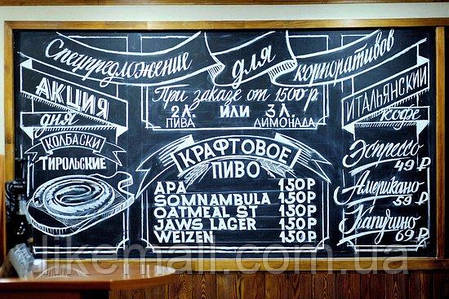 Спецпредложение для корпоративов
При заказе от 1500р
2л. или 3л.
ПИВА ЛИМОНАДА
АКЦИЯ
дня
КОЛБАСКИ
ТИРОЛЬСКИЕ
КРАФТОВОЕ
ПИВО
APA 150Р
SOMNAMBULA 150Р
OATMEAL ST 150Р
JAWS LAGER 150Р
WEIZEN 150Р
ИТАЛЬЯНСКИЙ
кофе
Эспрессо
49Р
Американо
59Р
Капучино
69Р
likemall.com.ua